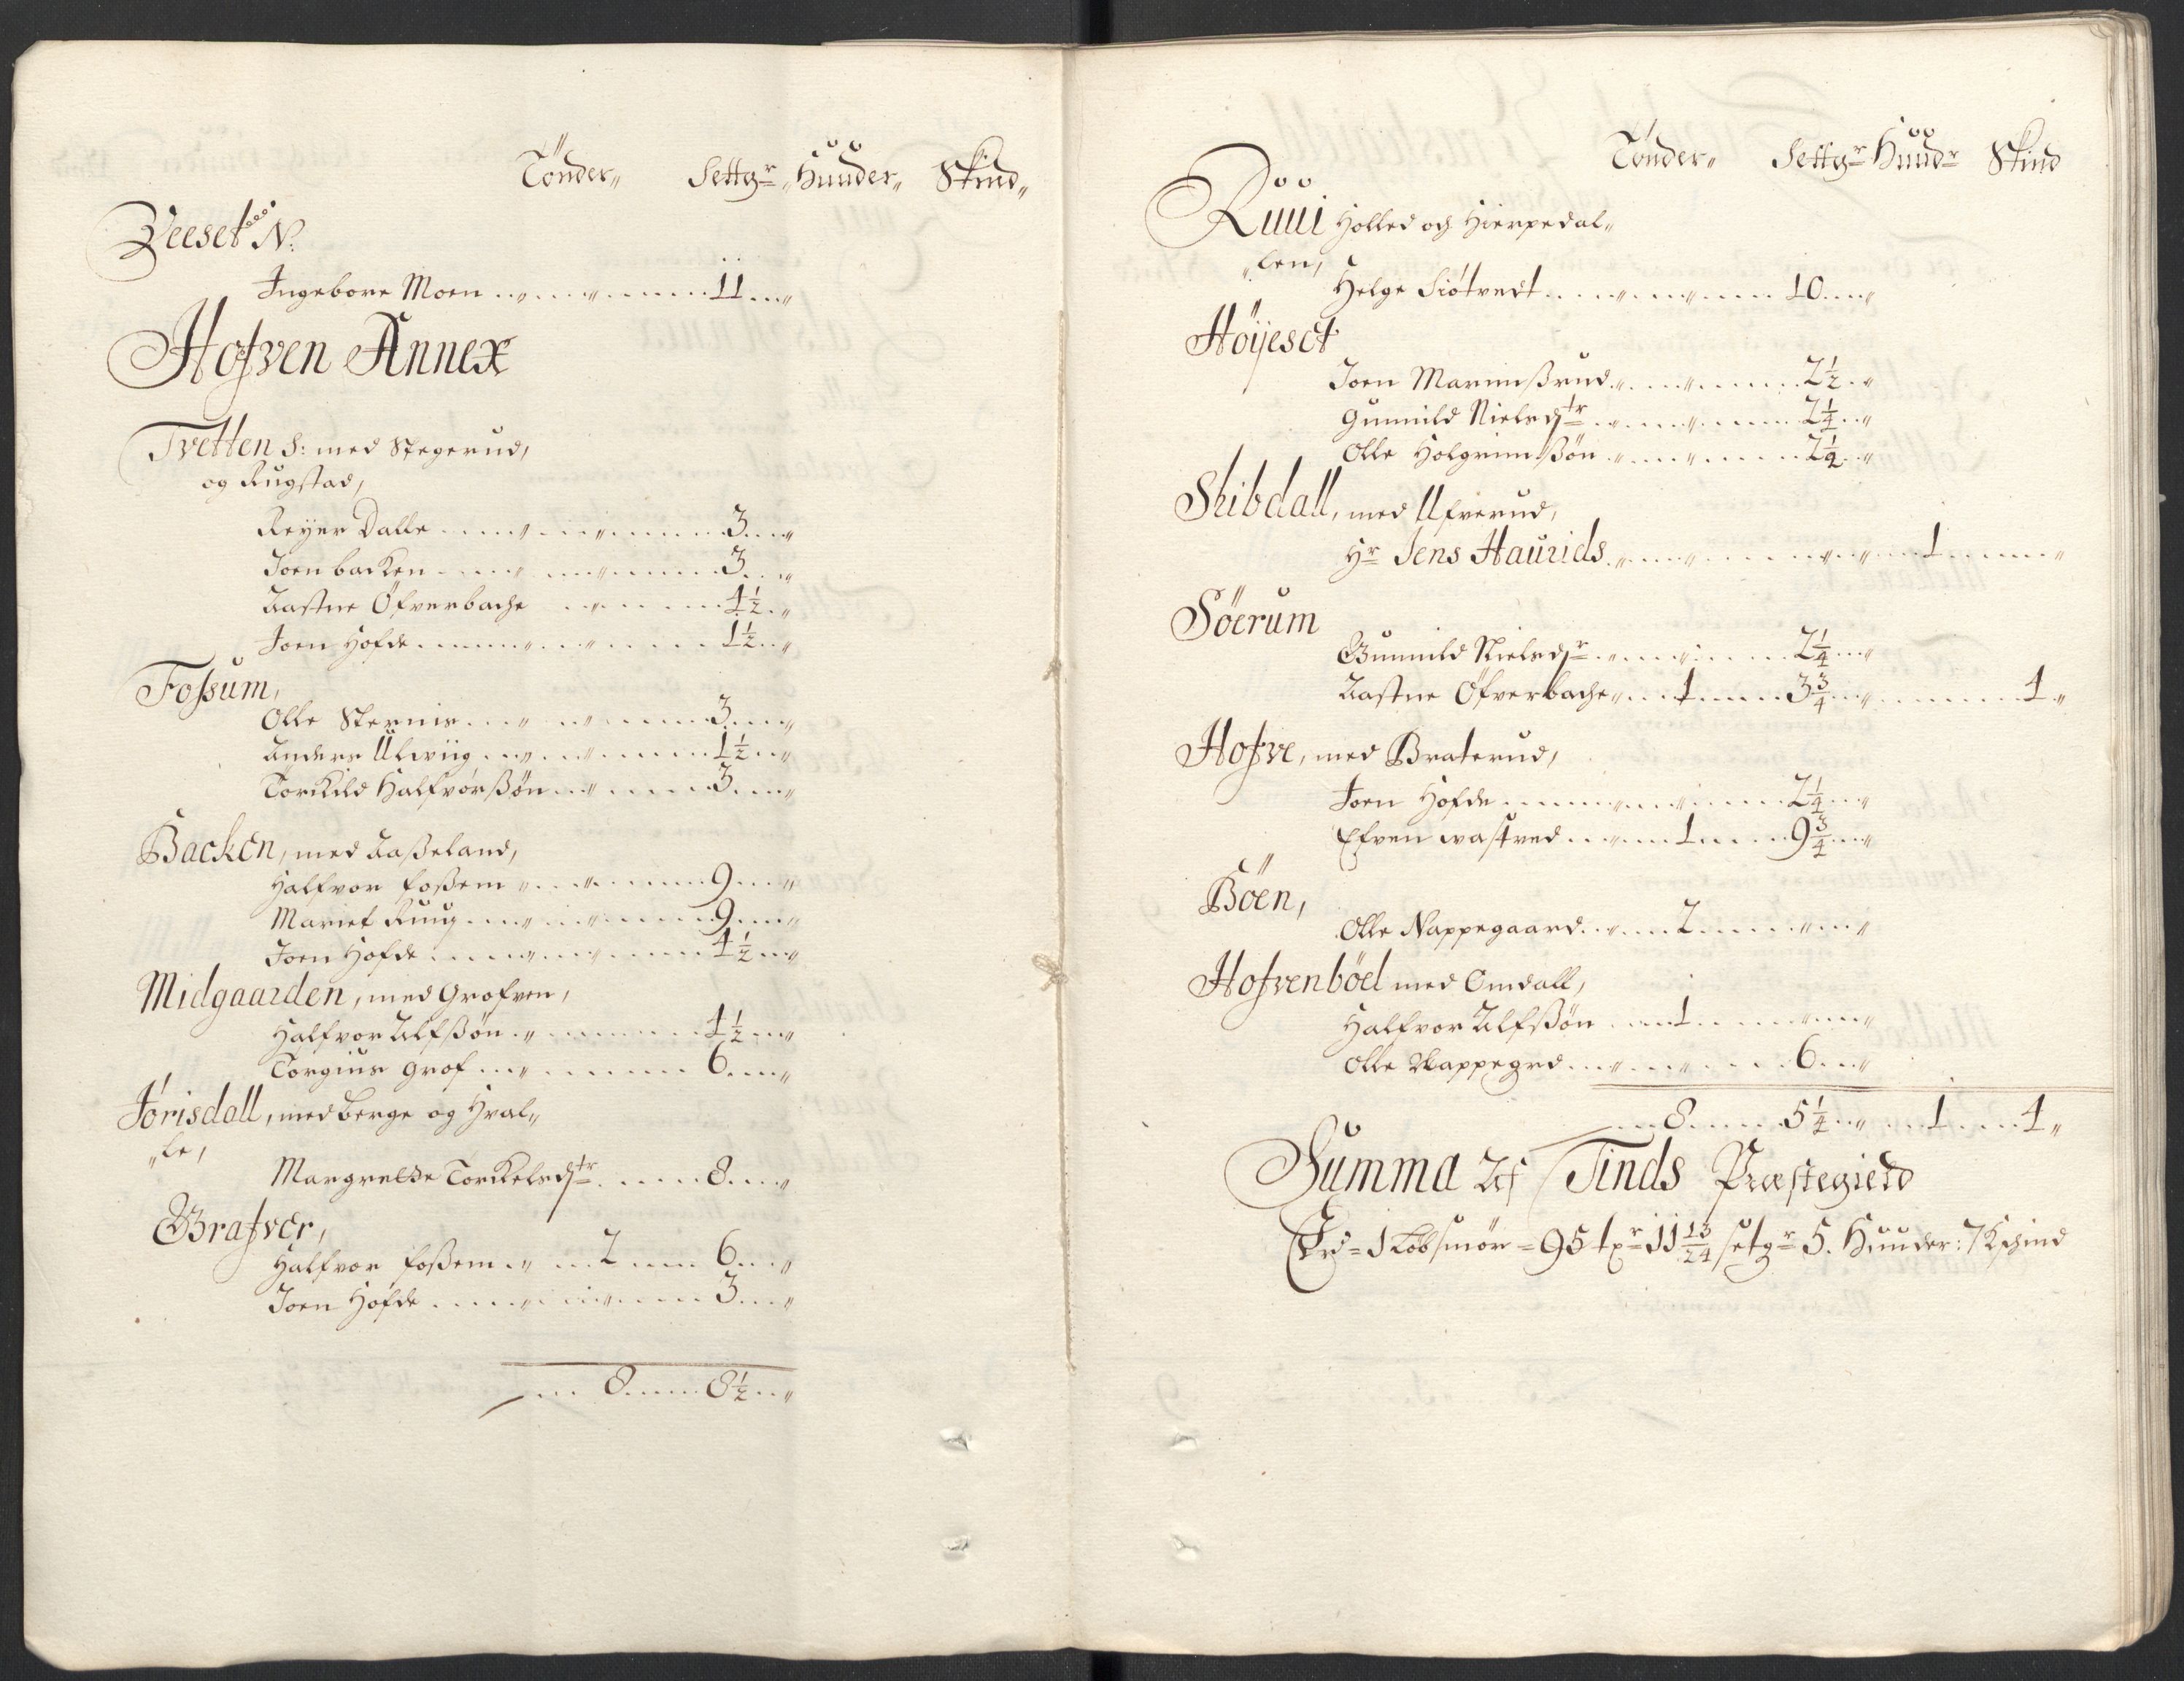 Tönder„ Settgr „Huuder„ Skind„
Veeset N.
Ingebore Moen 11
Hofven Annex
Tvetten S: med Stegerud,
og Rugstad,
Reyer Dalle 3
Joen backen 3
Aastne Öfverbache 4½
Joen Hofde 1½
Fossum,
Olle Sternis 3
Anders Ulwiig 1½
Torckild Halfvorßön 3
Backen, med Aaßeland,
Halfvor foßem 9
Mariet Ruug 9
Joen Hofde 4½
Midgaarden, med Grofven,
Halfvor Alfßön 4½
Torgius Grof 6
Jörisdall, med berge og Hval„
„le,
Margrette Torckelsdtr 8
Grafver,
Halfvor foßem 2 6
Joen Hofde 3
8 8½
Tönder„ Settgr Huudr Skind
Ruui Holled och Hierpedal„
„len,
Helge Siötvedt 10
Höÿeset
Joen Marumßrud 2½
Gunnild Nielsdtr 2¼
Olle Holgrimßön 2¼
Skibdall, med Ufverud,
Hr Jens Haurids 1
Söerum
Gunnild Nielsdr 2¼
Aastne Öfverbache 1 3¾ 4
Hofve, med Braterud,
Joen Hofde 2¼
Efven wastved 1 9¾
Böen,
Olle Nappegaard 2
Hofvenböel med Omdall,
Halfvor Alfßön 1
Olle Nappegrd 6
8 5¼ 1 4
Summa Af Tinds Præstegield
Er = 1 Löb smör = 95 txr 11 13/24 setgr 5. Huuder: 7 Kschind